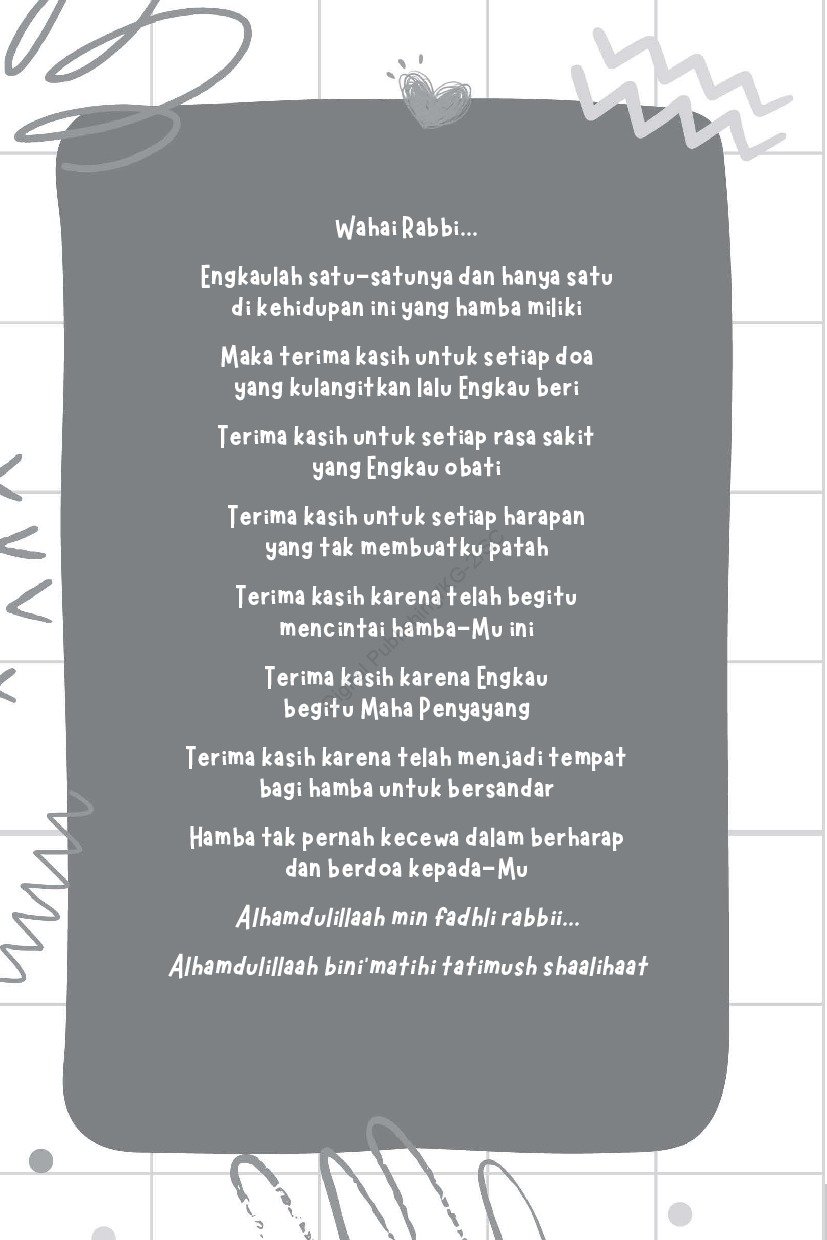 Wahai Rabbi...
Engkaulah satu-satunya dan hanya satu
di kehidupan ini yang hamba miliki
Maka terima kasih untuk setiap doa
yang kulangitkan lalu Engkau beri
Terima kasih untuk setiap rasa sakit
yang Engkau obati
Terima kasih untuk setiap harapan
yang tak membuatku patah
Terima kasih karena telah begitu
mencintai hamba-Mu ini
Terima kasih karena Engkau
begitu Maha Penyayang
Terima kasih karena telah menjadi tempat
bagi hamba untuk bersandar
Hamba tak pernah kecewa dalam berharap
dan berdoa kepada-Mu
Alhamdulillaah min fadhli rabbii...
Alhamdulillaah bini'matihi tatimush shaalihaat